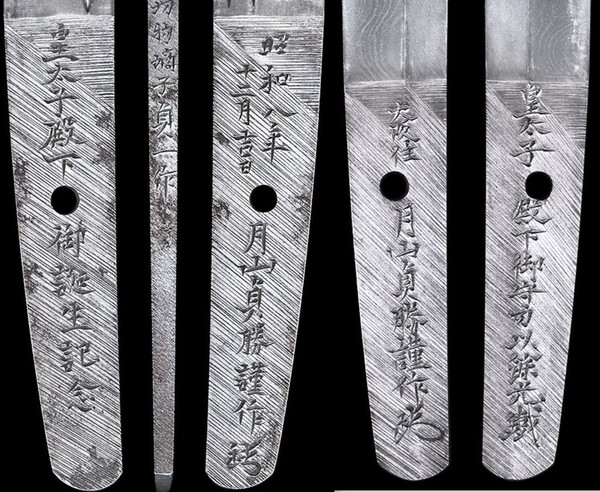 皇太子殿下御誕生記念
物嫡子貞一作
昭和八年
十二月吉日
月山貞勝謹作
大阪住月山貞勝謹作
皇太子殿下御守刀以餘光鐵